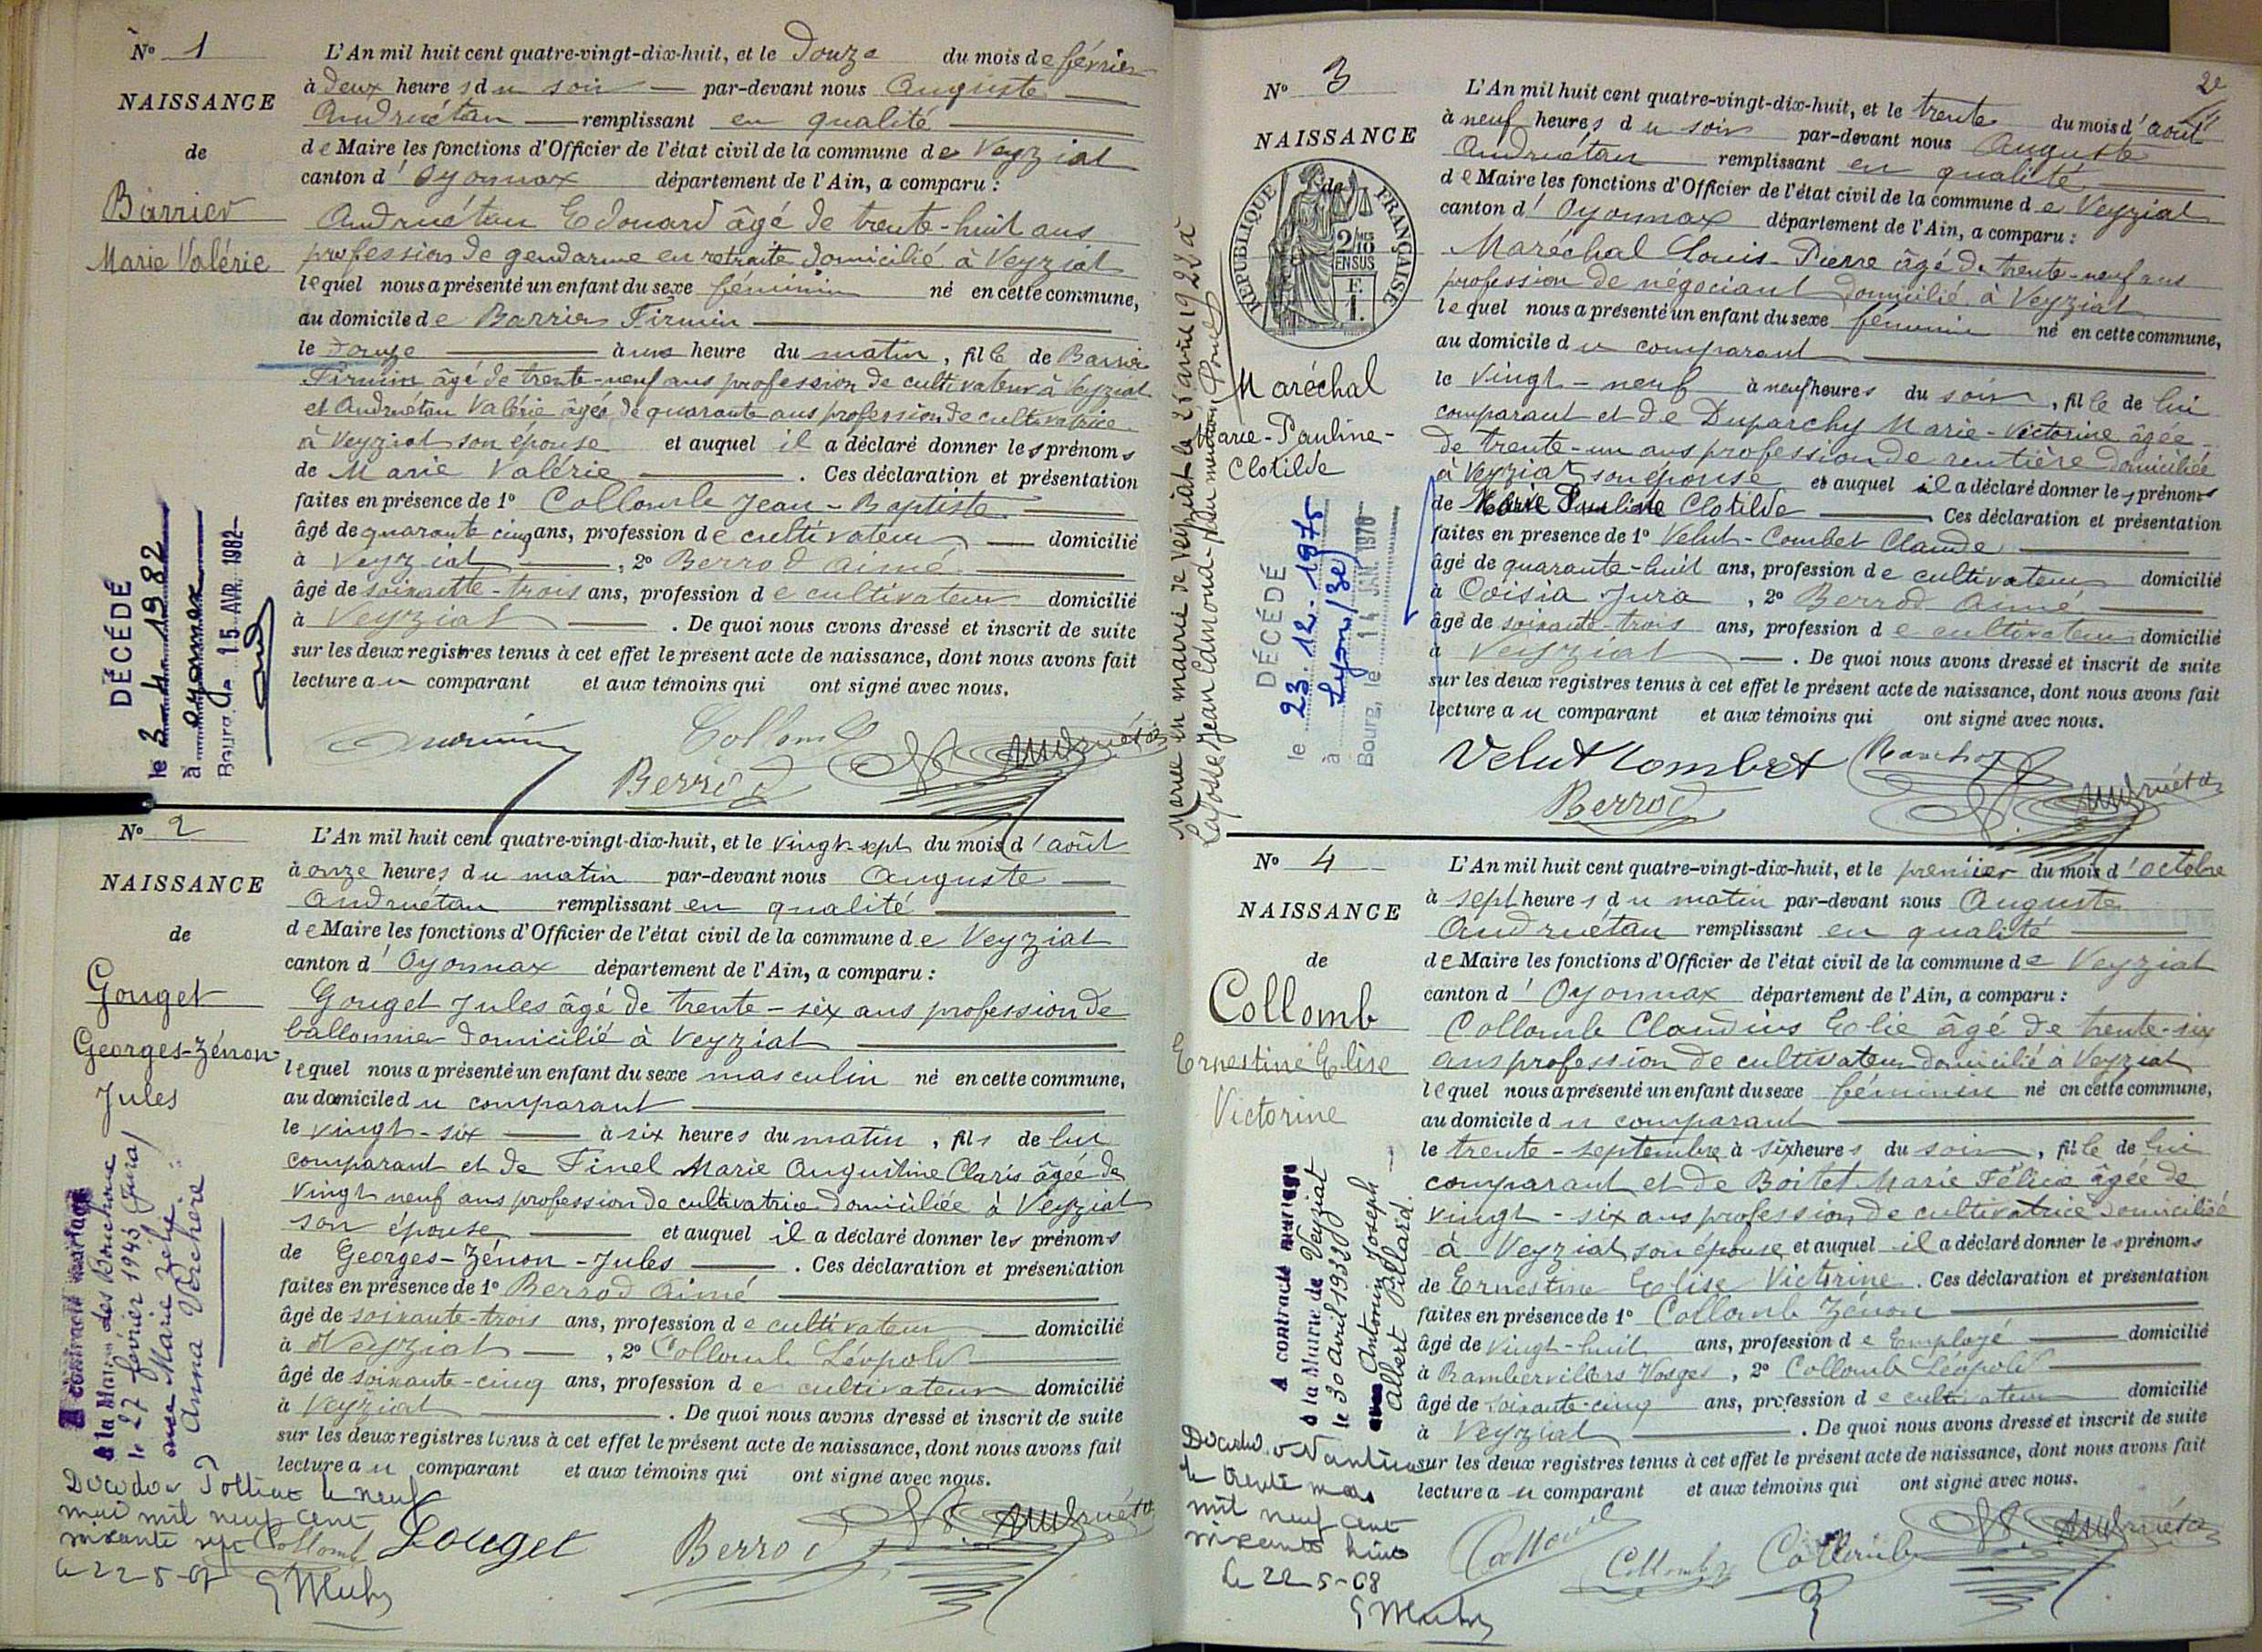 N° 1
NAISSANCE
de
Barrier
Marie Valérie
L'An mil huit cent quatre-vingt-dix-huit, et le Douze du mois de février
à Deux heures du soir par-devant nous Auguste
Andruétan remplissant en qualité
de Maire les fonctions d'Officier de l'état civil de la commune de Veyziat
canton d'Oyonnax département de l'Ain, a comparu :
Andruétan Edouard âgé de trente-huit ans
profession de gendarme en retraite domicilié à Veyziat
lequel nous a présenté un enfant du sexe féminin né en cette commune,
au domicile de Barrier Firmin
le douze à une heure du matin, fille de Barrier
Firmin âgé de trente-neuf ans profession de cultivateur à Veyziat
et Andruétan Valérie âgée de quarante ans profession de cultivatrice
à Veyziat son épouse et auquel il a déclaré donner les prénoms
de Marie Valérie . Ces déclaration et présentation
faites en présence de 1° Collomb Jean-Baptiste
âgé de quarante cinq ans, profession de cultivateur domicilié
à Veyziat , 2° Berrod Aimé
âgé de soixante-trois ans, profession de cultivateur domicilié
à Veyziat . De quoi nous avons dressé et inscrit de suite
sur les deux registres tenus à cet effet le présent acte de naissance, dont nous avons fait
lecture au comparant et aux témoins qui ont signé avec nous.
DÉCÉDÉ
le 3.4.1982
à Oyonnax
Bourg, le 15 AVR. 1982
Collomb
Berrod
Andruétan
N° 2
NAISSANCE
de
Gouget
Georges-Zénon-
Jules
L'An mil huit cent quatre-vingt-dix-huit, et le vingt-sept du mois d'août
à onze heures du matin par-devant nous Auguste
Andruétan remplissant en qualité
de Maire les fonctions d'Officier de l'état civil de la commune de Veyziat
canton d'Oyonnax département de l'Ain, a comparu :
Gouget Jules âgé de trente-six ans profession de
ballonnier domicilié à Veyziat
lequel nous a présenté un enfant du sexe masculin né en cette commune,
au domicile du comparant
le vingt-six à six heures du matin, fils de lui
comparant et de Finel Marie Augustine Claris âgée de
vingt neuf ans profession de cultivatrice domiciliée à Veyziat
son épouse et auquel il a déclaré donner les prénoms
de Georges-Zénon-Jules . Ces déclaration et présentation
faites en présence de 1° Berrod Aimé
âgé de soixante-trois ans, profession de cultivateur domicilié
à Veyziat , 2° Collomb Léopold
âgé de soixante-cinq ans, profession de cultivateur domicilié
à Veyziat . De quoi nous avons dressé et inscrit de suite
sur les deux registres tenus à cet effet le présent acte de naissance, dont nous avons fait
lecture au comparant et aux témoins qui ont signé avec nous.
A contracté mariage
à la Mairie des Bouchoux
le 27 février 1943 (Jura)
avec Marie Zély
Anna Verchère
Décédé à Pollieu le neuf
mai mil neuf cent
soixante sept
le 22-5-67
Collomb
Gouget
Berrod
Andruétan
N° 3
NAISSANCE
de
RÉPUBLIQUE FRANÇAISE
2/10MES
EN SUS
F.
1.
Maréchal
Marie-Pauline-
Clotilde
2e
L'An mil huit cent quatre-vingt-dix-huit, et le trente du mois d'août
à neuf heures du soir par-devant nous Auguste
Andruétan remplissant en qualité
de Maire les fonctions d'Officier de l'état civil de la commune de Veyziat
canton d'Oyonnax département de l'Ain, a comparu :
Maréchal Louis-Pierre âgé de trente-neuf ans
profession de négociant domicilié à Veyziat
lequel nous a présenté un enfant du sexe féminin né en cette commune,
au domicile du comparant
le vingt-neuf à neuf heures du soir, fille de lui
comparant et de Duparchy Marie-Victorine âgée
de trente-un ans profession de rentière domiciliée
à Veyziat son épouse et auquel il a déclaré donner les prénoms
de Marie Pauline Clotilde Ces déclaration et présentation
faites en présence de 1° Velut-Combet Claude
âgé de quarante-huit ans, profession de cultivateur domicilié
à Coisia Jura , 2° Berrod Aimé
âgé de soixante-trois ans, profession de cultivateur domicilié
à Veyziat . De quoi nous avons dressé et inscrit de suite
sur les deux registres tenus à cet effet le présent acte de naissance, dont nous avons fait
lecture au comparant et aux témoins qui ont signé avec nous.
Mariée en mairie de Veyziat le 26 avril 1922 à
Lafosse Jean Edmond
DÉCÉDÉ
le 23.12.1975
à Lyon (3e)
Bourg, le 14 JAN. 1976
Velut Combet
Berrod
Andruétan
N° 4
NAISSANCE
de
Collomb
Ernestine Elise
Victorine
L'An mil huit cent quatre-vingt-dix-huit, et le premier du mois d'octobre
à sept heures du matin par-devant nous Auguste
Andruétan remplissant en qualité
de Maire les fonctions d'Officier de l'état civil de la commune de Veyziat
canton d'Oyonnax département de l'Ain, a comparu :
Collomb Claudius Elie âgé de trente-six
ans profession de cultivateur domicilié à Veyziat
lequel nous a présenté un enfant du sexe féminin né en cette commune,
au domicile du comparant
le trente-septembre à six heures du soir, fille de lui
comparant et de Boitet Marie Félicie âgée de
vingt-six ans profession de cultivatrice domiciliée
à Veyziat son épouse et auquel il a déclaré donner les prénoms
de Ernestine Elise Victorine. Ces déclaration et présentation
faites en présence de 1° Collomb Zénon
âgé de vingt-huit ans, profession de Employé domicilié
à Rambervillers Vosges, 2° Collomb Léopold
âgé de soixante-cinq ans, profession de cultivateur domicilié
à Veyziat . De quoi nous avons dressé et inscrit de suite
sur les deux registres tenus à cet effet le présent acte de naissance, dont nous avons fait
lecture au comparant et aux témoins qui ont signé avec nous.
A contracté mariage
à la Mairie de Veyziat
le 30 avril 1932
avec Antonin Joseph
Albert Pillard.
Décédée à Nantua
le trente mars
mil neuf cent
soixante huit
Le 22-5-68
Collomb
Collomb
Collomb
Andruétan